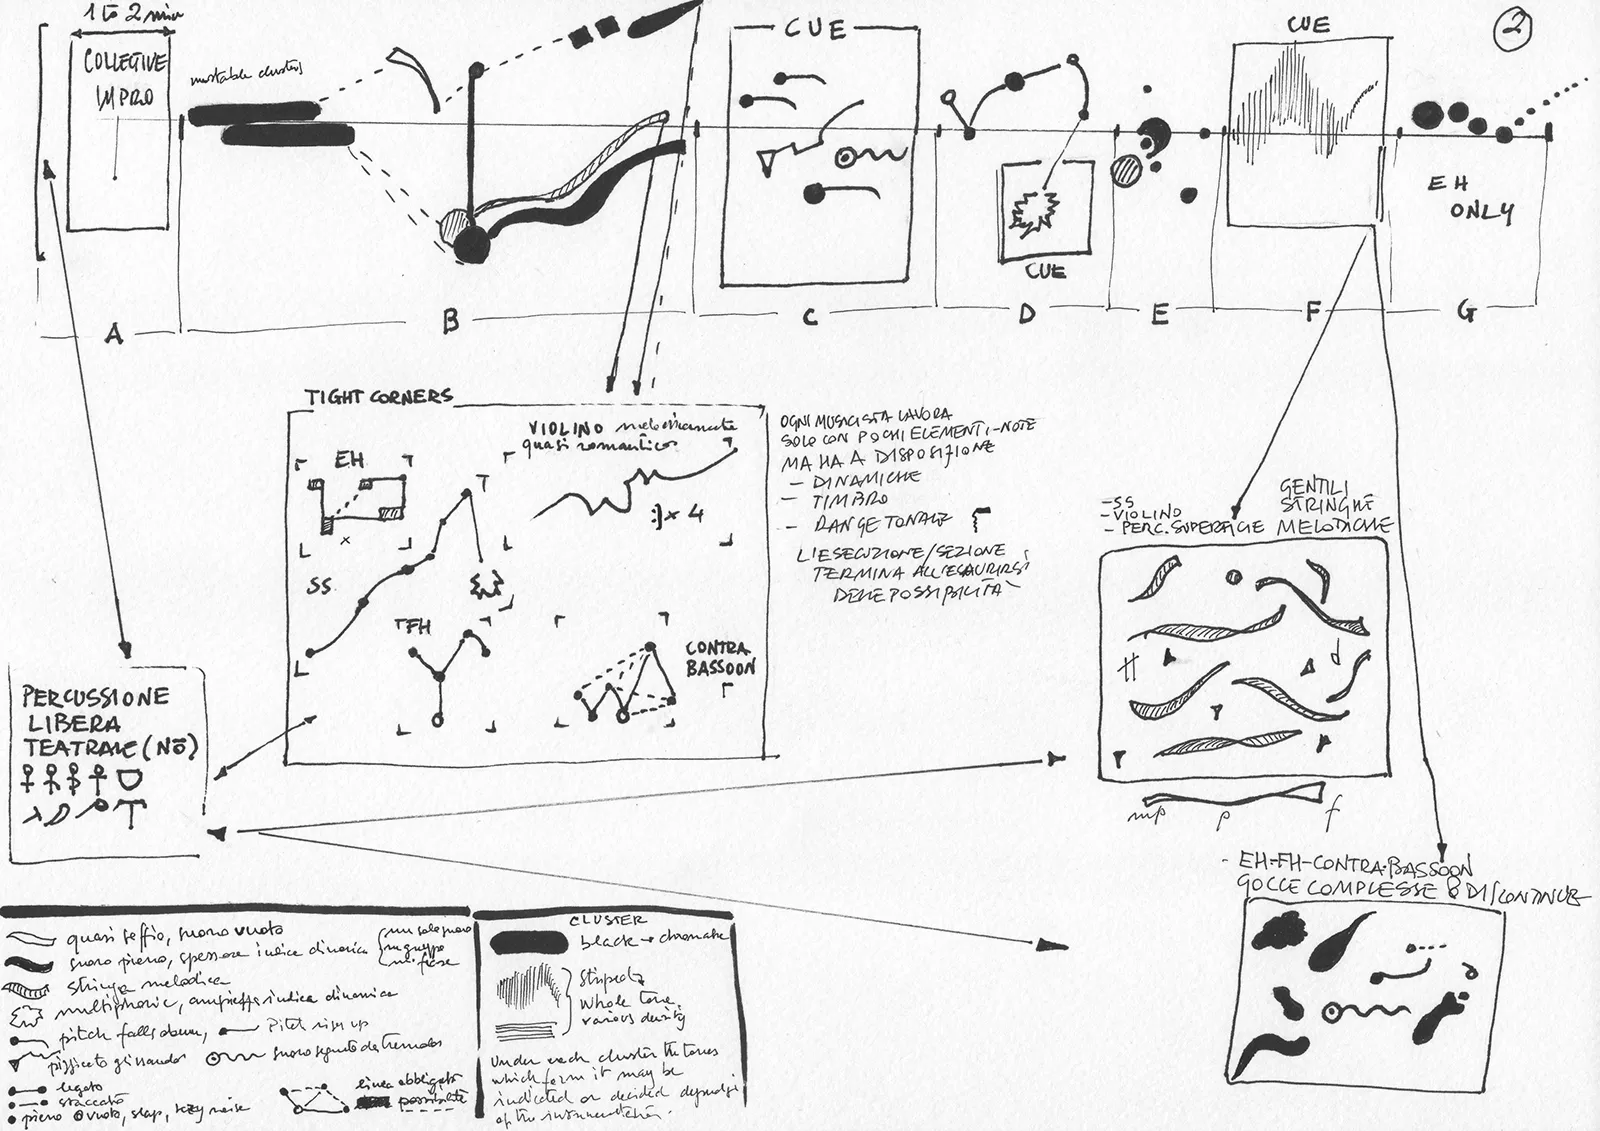 1 to 2 min
CUE
CUE
2
COLLECTIVE
IMPRO
unstable clusters
EH
ONLY
CUE
A
B
C
D
E
F
G
TIGHT CORNERS
VIOLINO melodicamente
quasi romantico
EH
T
:] x 4
x
SS
L
FH
CONTRA
BASSOON
OGNI MUSICISTA LAVORA
SOLO CON POCHI ELEMENTI-NOTE
MA HA A DISPOSIZIONE
- DINAMICHE
- TIMBRO
- RANGE TONALE
L'ESECUZIONE/SEZIONE
TERMINA ALL'ESAURIRSI
DELLE POSSIBILITÀ
- SS
- VIOLINO
- PERC. SUPERFICIE
GENTILI
STRINGHE
MELODICHE
mp p f
PERCUSSIONE
LIBERA
TEATRALE (NŌ)
- EH-FH-CONTRABASSOON
GOCCE COMPLESSE & DISCONTINUE
quasi soffio, suono vuoto
suono pieno, spessore indica dinamica
stringa melodica
multiphonic, ampiezza indica dinamica
pitch falls down, Pitch rises up
pizzicato glissando suono seguito da tremolos
legato
staccato
pieno o vuoto, slap, key noise
linea obbligata
possibilità
CLUSTER
black → chromatic
striped
whole tone
various density
Under each cluster the tones
which form it may be
indicated or decided
of the instrumentation.